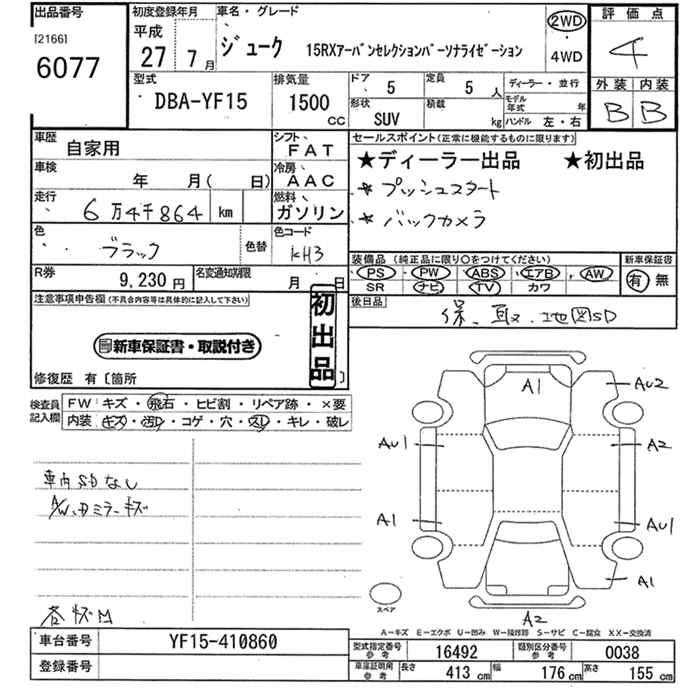 出品番号
[2166]
6077
初度登録年月
平成
27年 7月
車名・グレード
ジューク 15RXアーバンセレクションパーソナライゼーション
2WD
4WD
評価点
4
外装 内装
B B
型式
DBA-YF15
排気量
1500 CC
ドア 5
形状 SUV
定員 5 人
積載 kg
ディーラー・並行
モデル年式 年
ハンドル 左・右
車歴 自家用
シフト F AT
車検 年 月( 日)
冷房 AAC
走行 6万4千864 km
燃料 ガソリン
色 ブラック
色替
色コード KH3
R券 9,230 円
名変通知期限 月 日
セールスポイント(正常に機能するものに限ります)
★ディーラー出品 ★初出品
★ プッシュスタート
★ バックカメラ
装備品 (純正品に限り○をつけてください)
PS PW ABS エアB AW
SR ナビ TV カワ
新車保証書
有 無
後日品
保、取、地図SD
注意事項申告欄(不具合内容等は具体的に記入して下さい)
新車保証書・取説付き
初出品
修復歴 有〔箇所 〕
検査員記入欄
FW:キズ・飛石・ヒビ割・リペア跡・×要
内装:キズ・汚レ・コゲ・穴・スレ・キレ・破レ
車内SDなし
A/W、ドミラーキズ
A1
AU2
AU1
A2
A1
AU1
A1
A2
スペア
A-キズ E-エクボ U-凹み W-補修跡 S-サビ C-腐食 XX-交換済
車台番号 YF15-410860
登録番号
型式指定番号 参考 16492
類別区分番号 参考 0038
車庫証明用 参考 長さ 413 cm 幅 176 cm 高さ 155 cm